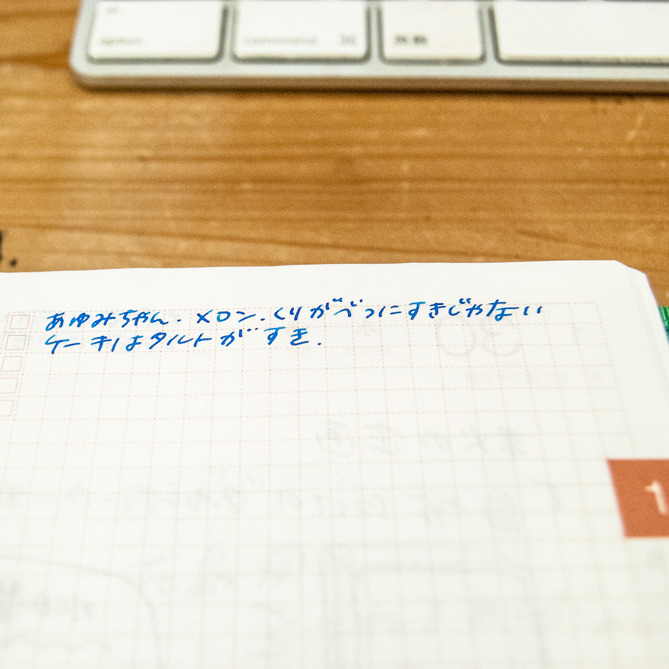 option
command
無変換
あゆみちゃん.メロン.くりがべつにすきじゃない
ケーキはタルトがすき.
30
1